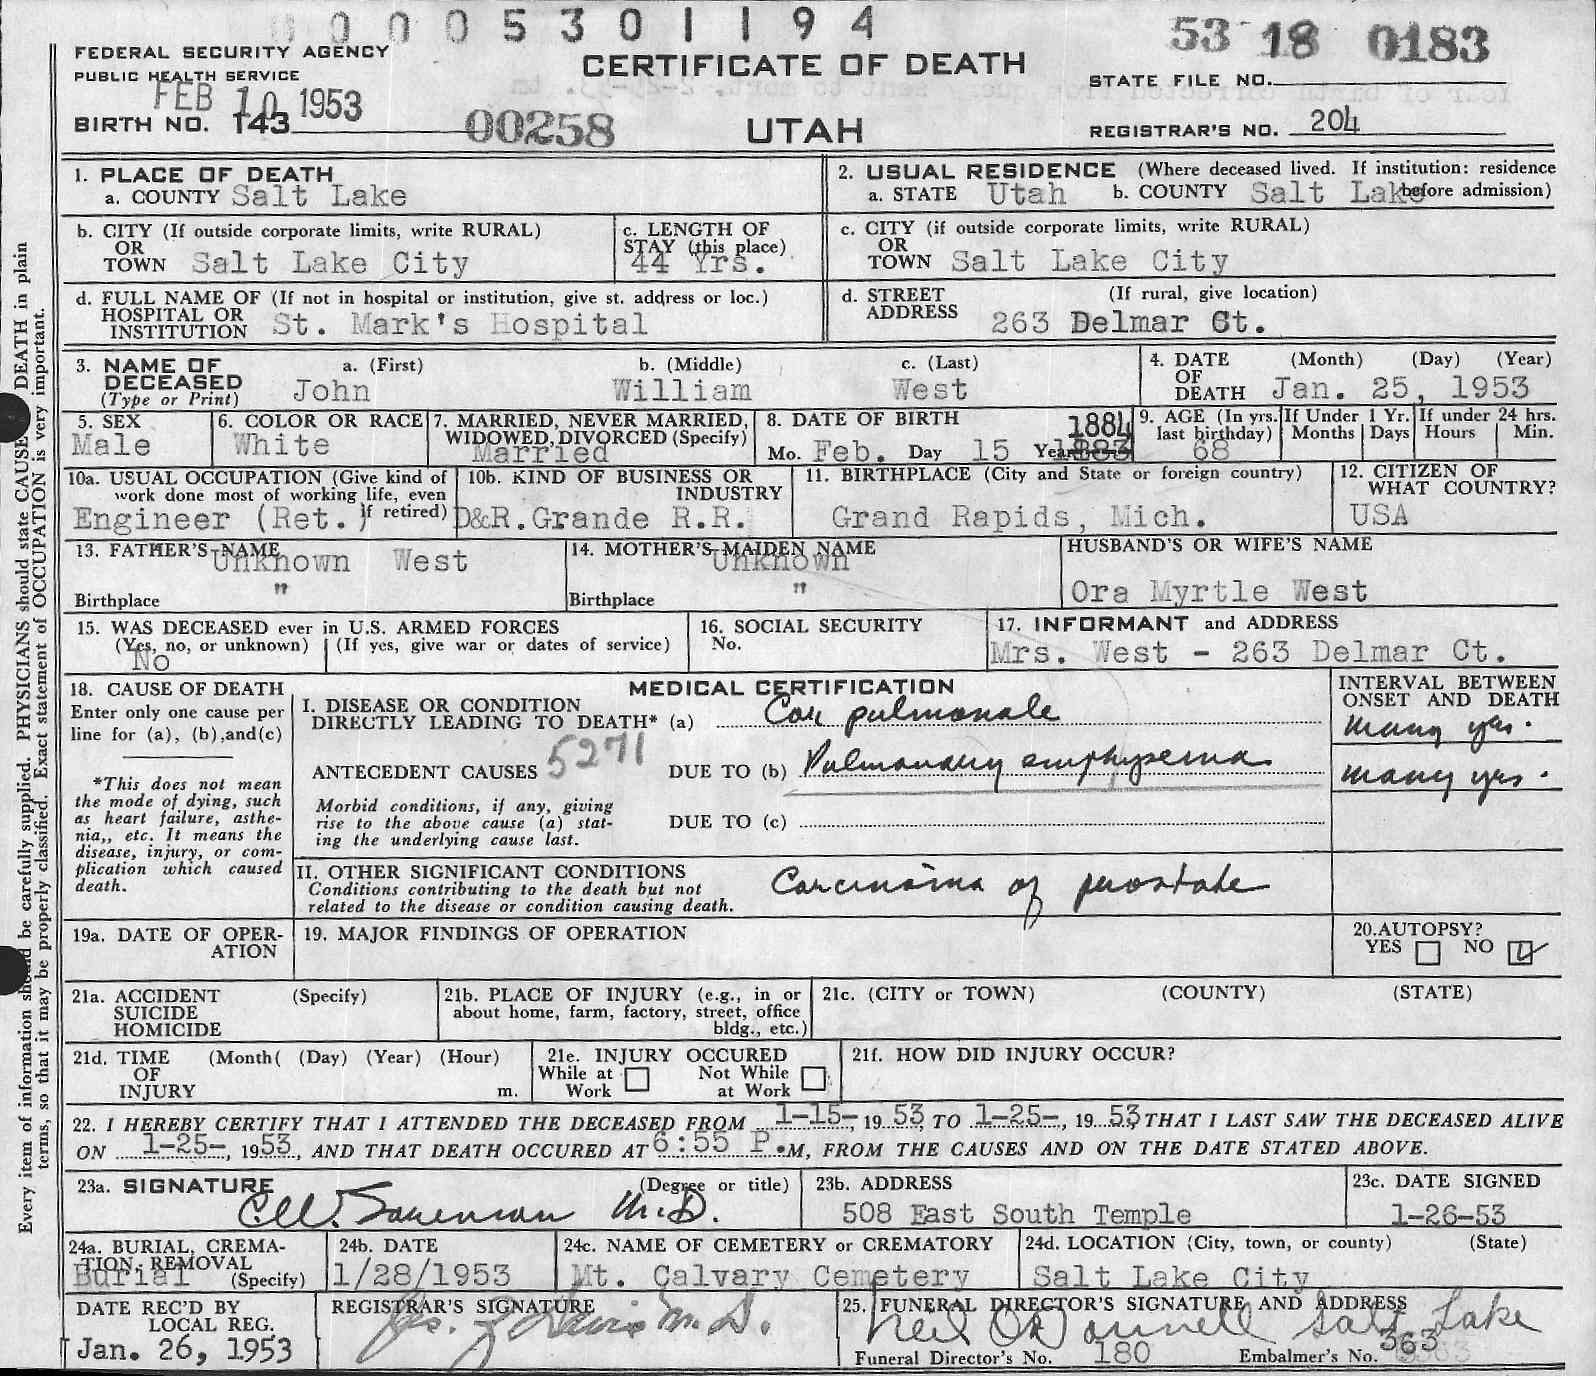 0005301194
53 18 0183
FEDERAL SECURITY AGENCY
PUBLIC HEALTH SERVICE
CERTIFICATE OF DEATH
STATE FILE NO.
FEB 10 1953
BIRTH NO. 143
00258
UTAH
REGISTRAR'S NO. 204
1. PLACE OF DEATH
a. COUNTY Salt Lake
2. USUAL RESIDENCE (Where deceased lived. If institution: residence before admission)
a. STATE Utah b. COUNTY Salt Lake
b. CITY (If outside corporate limits, write RURAL)
OR
TOWN Salt Lake City
c. LENGTH OF
STAY (this place)
44 Yrs.
c. CITY (if outside corporate limits, write RURAL)
OR
TOWN Salt Lake City
d. FULL NAME OF (If not in hospital or institution, give st. address or loc.)
HOSPITAL OR
INSTITUTION St. Mark's Hospital
d. STREET (If rural, give location)
ADDRESS 263 Delmar Ct.
3. NAME OF a. (First) b. (Middle) c. (Last)
DECEASED
(Type or Print) John William West
4. DATE (Month) (Day) (Year)
OF
DEATH Jan. 25, 1953
5. SEX
Male
6. COLOR OR RACE
White
7. MARRIED, NEVER MARRIED,
WIDOWED, DIVORCED (Specify)
Married
8. DATE OF BIRTH 1884
Mo. Feb. Day 15 Year 1883
9. AGE (In yrs.
last birthday)
68
If Under 1 Yr.
Months Days
If under 24 hrs.
Hours Min.
10a. USUAL OCCUPATION (Give kind of
work done most of working life, even
if retired)
Engineer (Ret.)
10b. KIND OF BUSINESS OR
INDUSTRY
D&R.Grande R.R.
11. BIRTHPLACE (City and State or foreign country)
Grand Rapids, Mich.
12. CITIZEN OF
WHAT COUNTRY?
USA
13. FATHER'S NAME
Unknown West
Birthplace "
14. MOTHER'S MAIDEN NAME
Unknown
Birthplace "
HUSBAND'S OR WIFE'S NAME
Ora Myrtle West
15. WAS DECEASED ever in U.S. ARMED FORCES
(Yes, no, or unknown) (If yes, give war or dates of service)
No
16. SOCIAL SECURITY
No.
17. INFORMANT and ADDRESS
Mrs. West - 263 Delmar Ct.
18. CAUSE OF DEATH
Enter only one cause per
line for (a), (b), and (c)
*This does not mean
the mode of dying, such
as heart failure, asthe-
nia,, etc. It means the
disease, injury, or com-
plication which caused
death.
MEDICAL CERTIFICATION
I. DISEASE OR CONDITION
DIRECTLY LEADING TO DEATH* (a) Cor pulmonale
ANTECEDENT CAUSES 5271 DUE TO (b) Pulmonary emphysema
Morbid conditions, if any, giving
rise to the above cause (a) stat-
ing the underlying cause last.
DUE TO (c)
INTERVAL BETWEEN
ONSET AND DEATH
many yrs.
many yrs.
II. OTHER SIGNIFICANT CONDITIONS
Conditions contributing to the death but not
related to the disease or condition causing death.
Carcinoma of prostate
19a. DATE OF OPER-
ATION
19. MAJOR FINDINGS OF OPERATION
20. AUTOPSY?
YES NO
21a. ACCIDENT (Specify)
SUICIDE
HOMICIDE
21b. PLACE OF INJURY (e.g., in or
about home, farm, factory, street, office
bldg., etc.)
21c. (CITY or TOWN) (COUNTY) (STATE)
21d. TIME (Month( (Day) (Year) (Hour)
OF
INJURY m.
21e. INJURY OCCURED
While at Work Not While at Work
21f. HOW DID INJURY OCCUR?
22. I HEREBY CERTIFY THAT I ATTENDED THE DECEASED FROM 1-15-, 19 53 TO 1-25-, 19 53, THAT I LAST SAW THE DECEASED ALIVE
ON 1-25-, 1953, AND THAT DEATH OCCURED AT 6:55 P.M, FROM THE CAUSES AND ON THE DATE STATED ABOVE.
23a. SIGNATURE (Degree or title)
C.W. Sorenson M.D.
23b. ADDRESS
508 East South Temple
23c. DATE SIGNED
1-26-53
24a. BURIAL, CREMA-
TION, REMOVAL
Burial (Specify)
24b. DATE
1/28/1953
24c. NAME OF CEMETERY or CREMATORY
Mt. Calvary Cemetery
24d. LOCATION (City, town, or county) (State)
Salt Lake City
DATE REC'D BY
LOCAL REG.
Jan. 26, 1953
REGISTRAR'S SIGNATURE
Jas. Z Davis M.D.
25. FUNERAL DIRECTOR'S SIGNATURE AND ADDRESS
Neil O'Donnell Salt Lake
Funeral Director's No. 180 Embalmer's No. 363
Every item of information should be carefully supplied. PHYSICIANS should state CAUSE OF DEATH in plain
terms, so that it may be properly classified. Exact statement of OCCUPATION is very important.